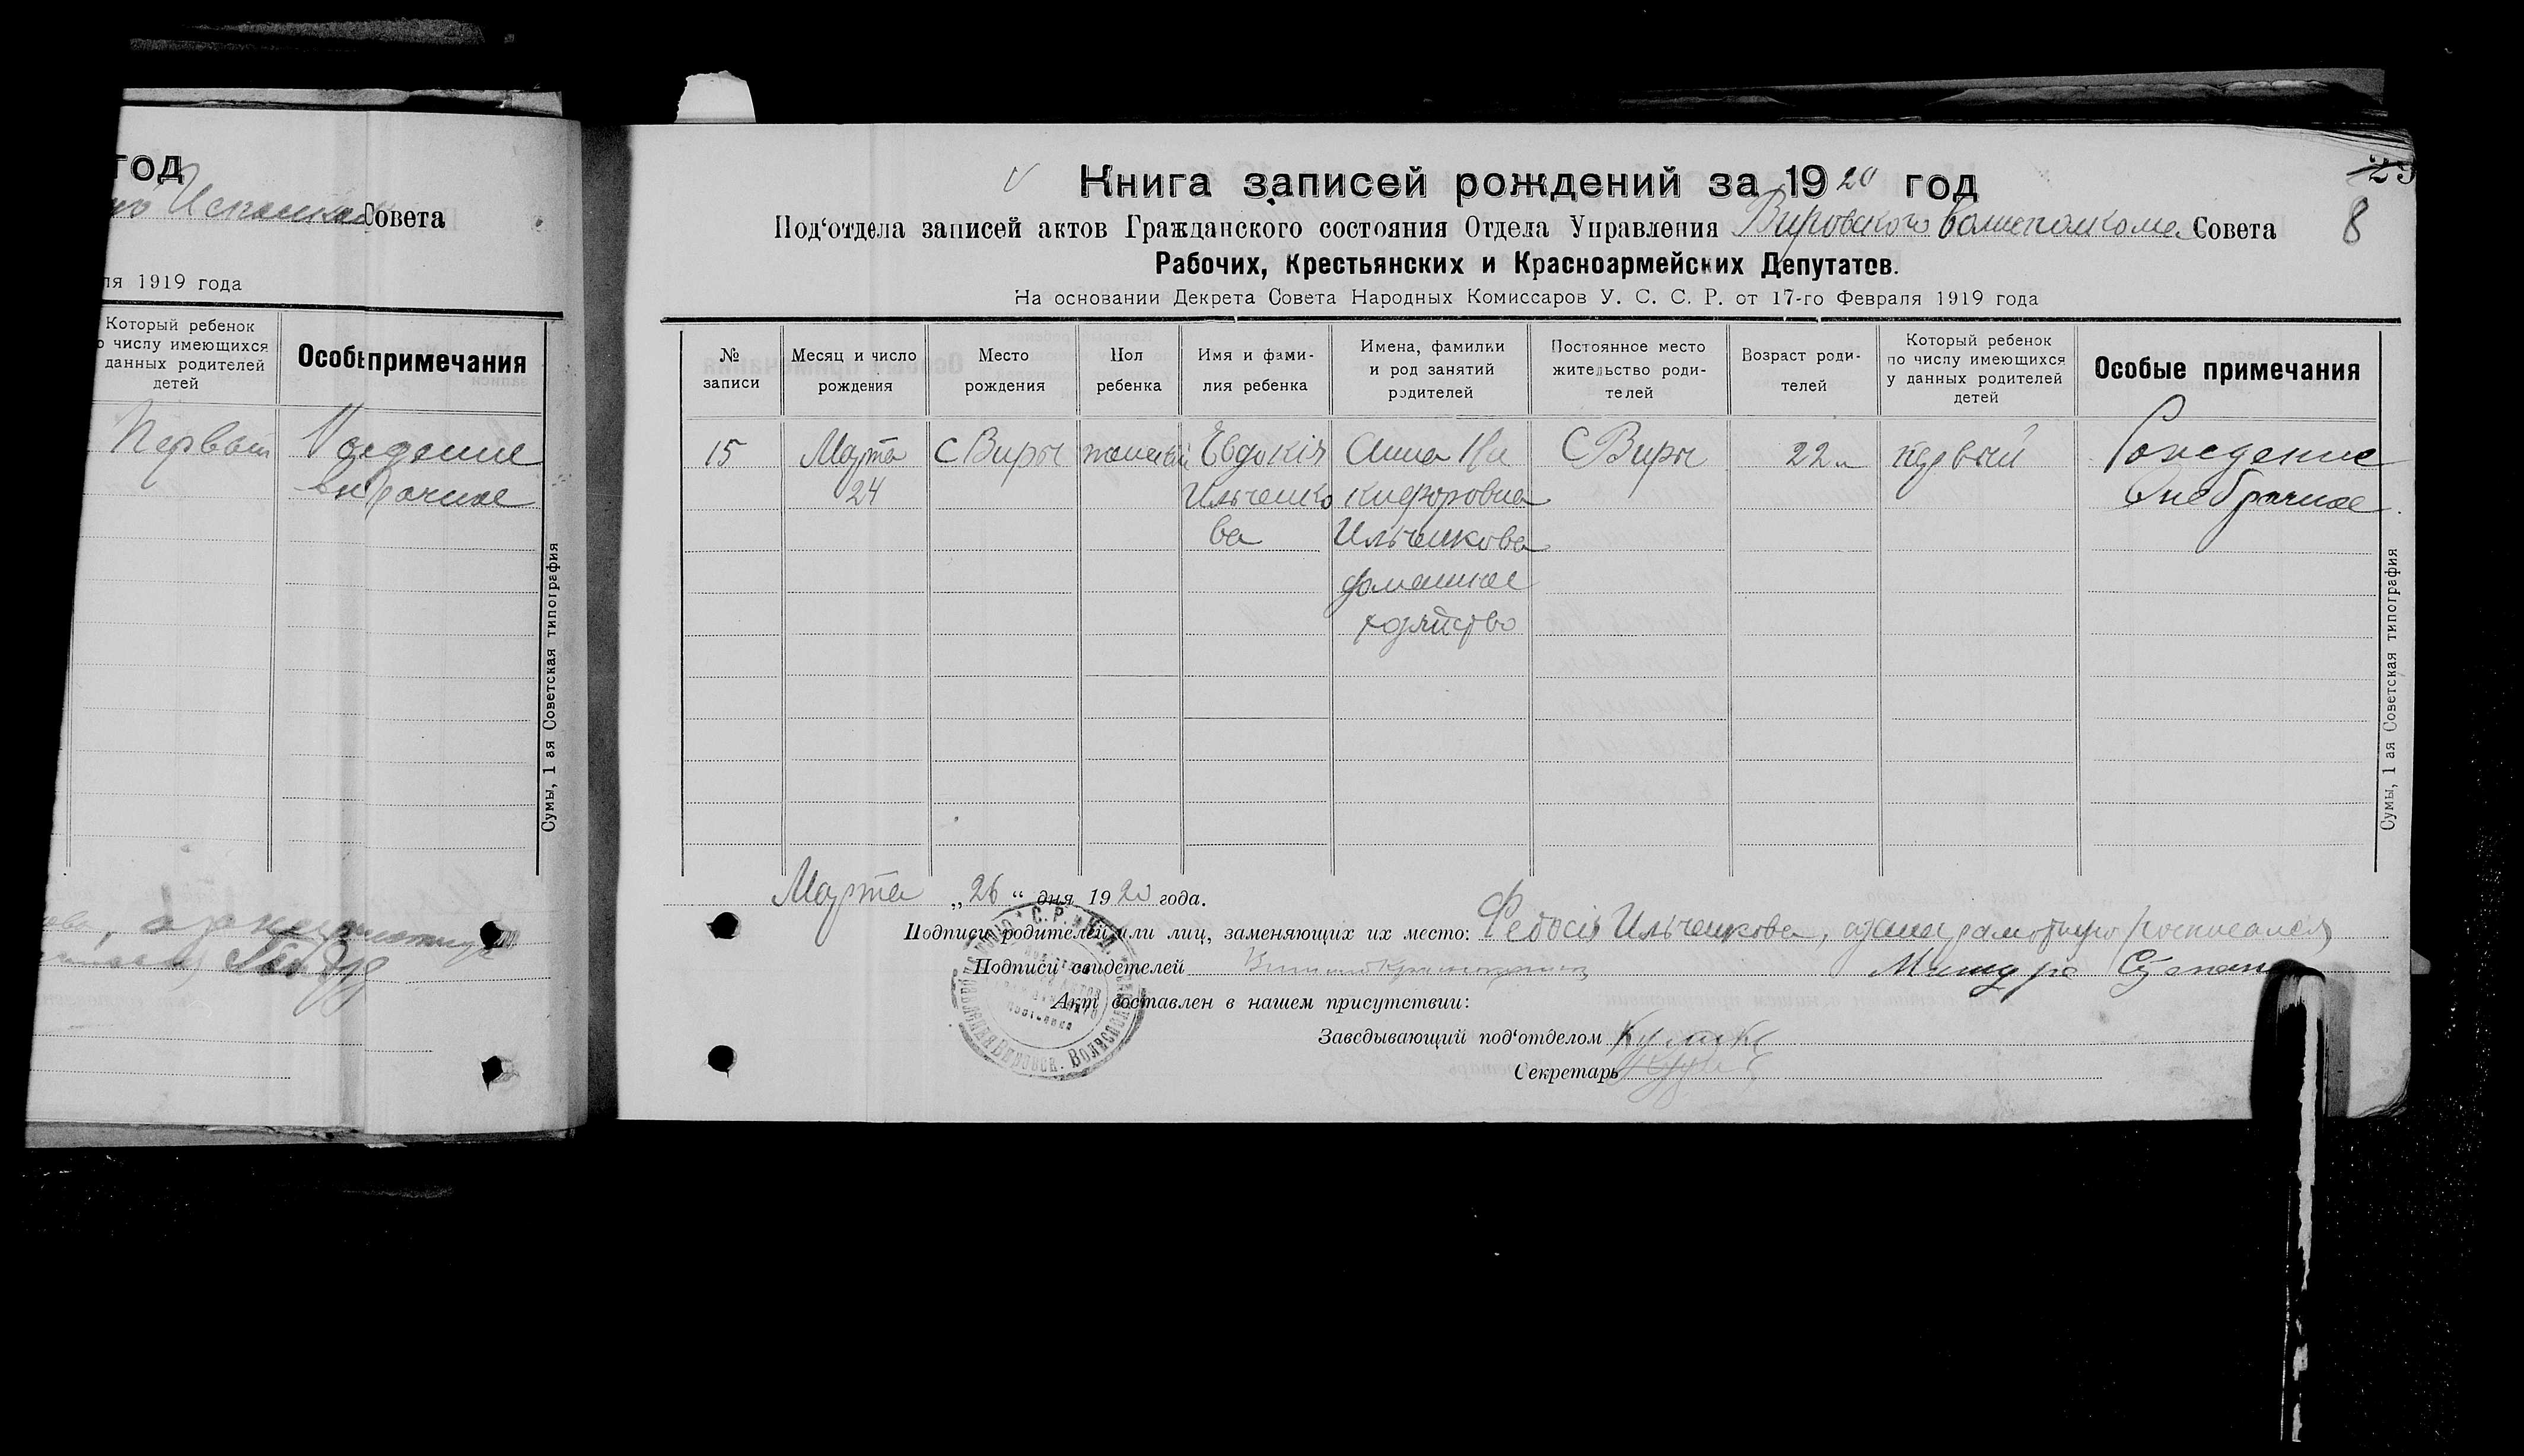 год
Совета
ля 1919 года
Который ребенок
о числу имеющихся
данных родителей
детей
Особ примечания
Первый
Рождение
внебрачное
Сумы, 1 ая Советская типография
Книга записей рождений за 1920 год
23
8
Под‘отдела записей актов Гражданского состояния Отдела Управления Вировского Волисполкома Совета
Рабочих, Крестьянских и Красноармейских Депутатов.
На основании Декрета Совета Народных Комиссаров У. С. С. Р. от 17-го Февраля 1919 года
№ записи
Месяц и число рождения
Место рождения
Пол ребенка
Имя и фами-
лия ребенка
Имена, фамилии
и род занятий
родителей
Постоянное место
жительство роди-
телей
Возраст роди-
телей
Который ребенок
по числу имеющихся
у данных родителей
детей
Особые примечания
15 Марта С Виры женский Евдокія Анна Ни С Виры 22 л первый Рождение
24 Ильченко кифоровна Внебрачное
ва Ильченкова
домашнее
хозяйство
Сумы, 1 ая Советская типография
Марта „26“ дня 1920 года.
Подписи родителей или лиц, заменяющих их место: Федосія Ильченкова, а за неграмотную росписался
Подписи свидетелей
Акт составлен в нашем присутствии:
Заведывающий под‘отделом
Секретарь